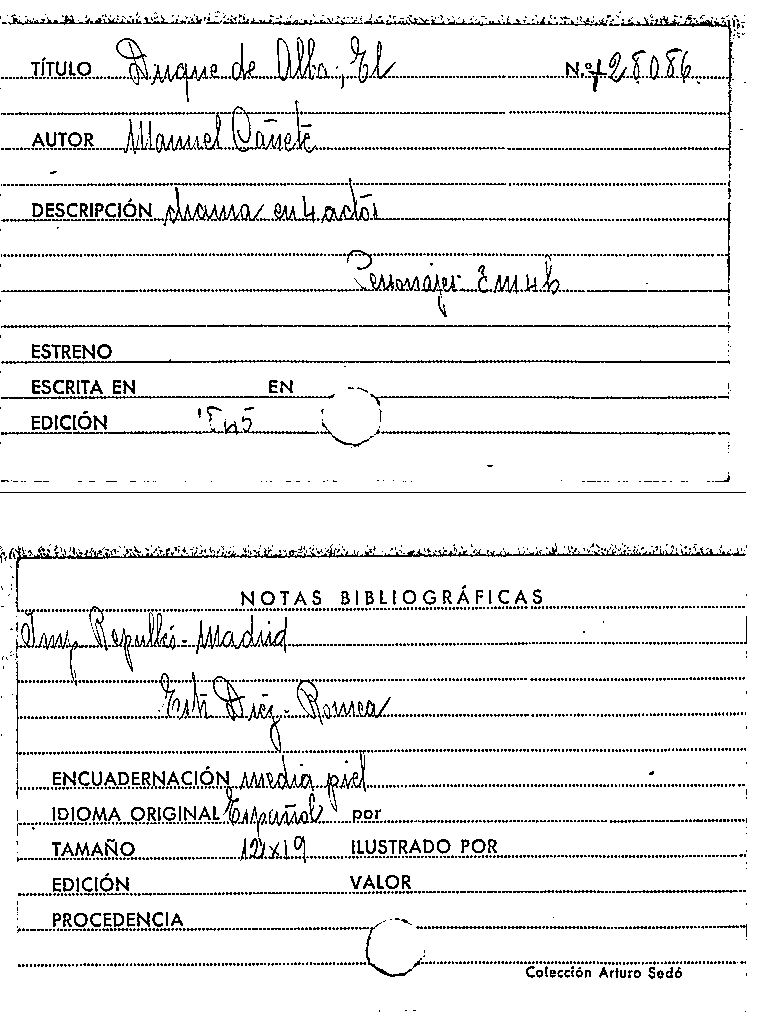 TÍTULO Duque de Alba, El N.º 28086
AUTOR Manuel Cañete
DESCRIPCIÓN drama en 4 actos
Personajes 3 m 4 h
ESTRENO
ESCRITA EN EN
EDICIÓN
NOTAS BIBLIOGRÁFICAS
Imp Repullés - Madrid
Diez - Romea
ENCUADERNACIÓN media piel
IDIOMA ORIGINAL Español por
TAMAÑO 12x19 ILUSTRADO POR
EDICIÓN VALOR
PROCEDENCIA
Colección Arturo Sedó